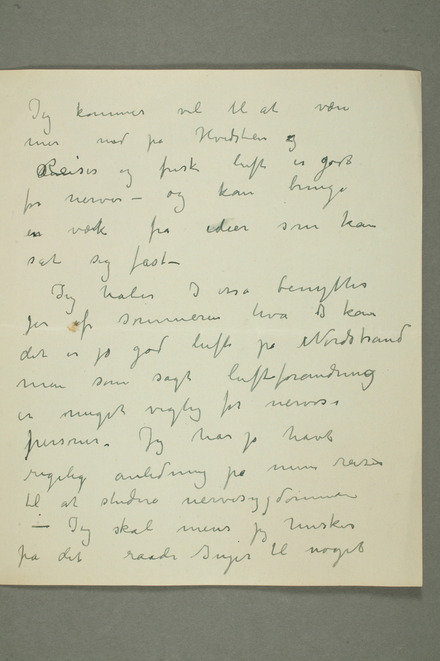 Jeg kommer vel til at være
mer ned på Hvidsten og
Reiser og frisk luft er godt
for nerver – og kan bringe
en væk fra ideer som kan
sæt sig fast –
Jeg håber I osså benytter
jer af sommeren hva I kan
det er jo god luft på Nordstrand
men som sagt luftforandring
er meget vigtig for nervøse
personer. Jeg har jo havt
rigelig anledning på mine reiser
til at studere nervesygdommen
– Jeg skal mens jeg husker
på det råde Inger til noget